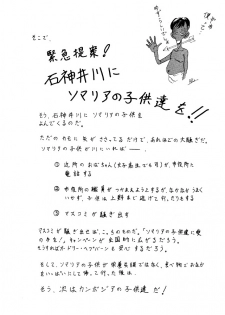 そこで、
緊急提案!
石神井川に
ソマリアの子供達を!!
そう、石神井川に ソマリアの子供を
よんでくるのだ。
ただの カモに 矢が ささってる だけで、あれほどの 大騒ぎだ。
ソマリアの子供が川にいれば ──.
① 近所のおばちゃん(女子高生でも可)が、市役所に
電話する
② 市役所の職員が つかまえようとするが、なかなか うまく
いかず、子供は 上野まで逃げて行ったりもする
③ マスコミが騒ぎ出す
マスコミが 騒ぎ出せば、こっちのものだ。「ソマリアの子供達に愛
の手を!」 キャンペーンが 全国的に広がるだろう。
もちろんオードリー・ヘプバーンも 安心するだろう。
そして、ソマリアの子供が 栄養失調ではなく、食べ物でおなか
をいっぱいにして 帰って行った後は、
そう、次はカンボジアの子供達だ!